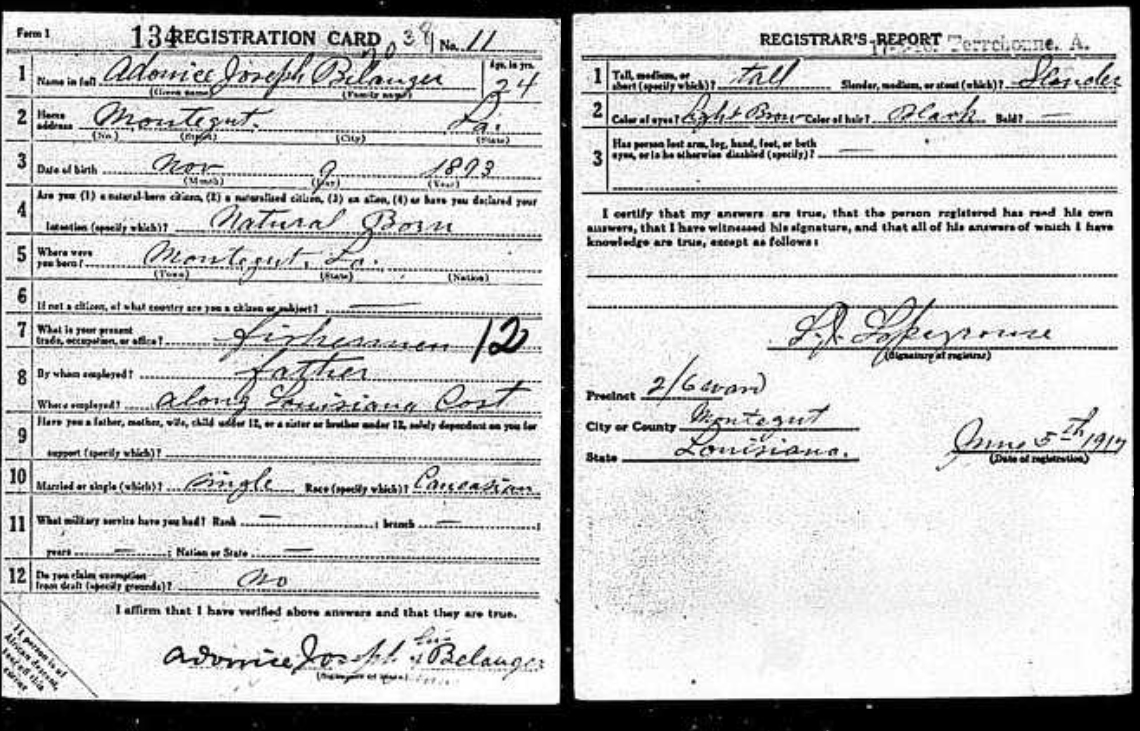 Form 1
134 REGISTRATION CARD No. 11
1 Name in full Adonice Joseph Belanger Age, in yrs. 24
(Given name) (Family name)
2 Home address Montegut. La.
(No.) (Street) (City) (State)
3 Date of birth Nov 9 1893
(Month) (Day) (Year)
4 Are you (1) a natural-born citizen, (2) a naturalized citizen, (3) an alien, (4) or have you declared your
intention (specify which)? Natural Born
5 Where were you born? Montegut, La.
(Town) (State) (Nation)
6 If not a citizen, of what country are you a citizen or subject? —
7 What is your present trade, occupation, or office? fishermen 12
8 By whom employed? father
Where employed? along Louisiana Cost
9 Have you a father, mother, wife, child under 12, or a sister or brother under 12, solely dependent on you for
support (specify which)?
10 Married or single (which)? single Race (specify which)? Caucasian
11 What military service have you had? Rank — ; branch — ;
years — ; Nation or State —
12 Do you claim exemption from draft (specify grounds)? No
I affirm that I have verified above answers and that they are true.
Adonice Joseph his x Belanger
(Signature or mark)
If person is of
African descent,
tear off this
corner
REGISTRAR'S REPORT
Terrebonne. A.
1 Tall, medium, or short (specify which)? tall Slender, medium, or stout (which)? Slender
2 Color of eyes? Light Brow Color of hair? Black Bald? —
3 Has person lost arm, leg, hand, foot, or both
eyes, or is he otherwise disabled (specify)? —
I certify that my answers are true, that the person registered has read his own
answers, that I have witnessed his signature, and that all of his answers of which I have
knowledge are true, except as follows:
(Signature of registrar)
Precinct 2/6 ward
City or County Montegut
State Louisiana.
June 5th, 1917
(Date of registration)